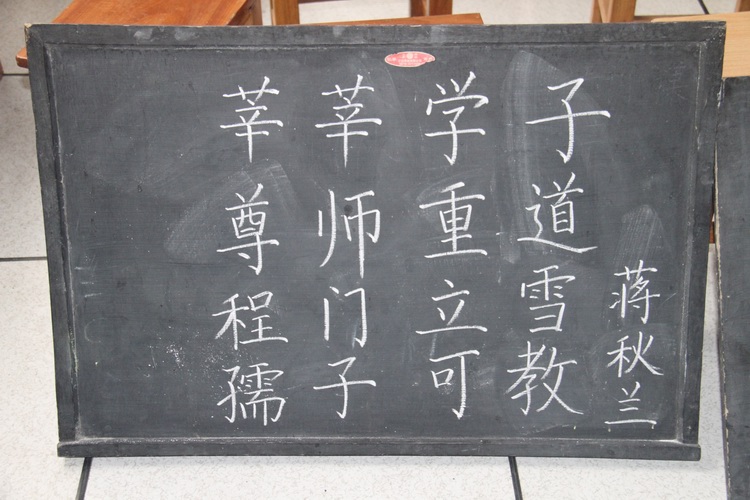 莘莘学子
尊师重道
程门立雪
孺子可教
蒋秋兰